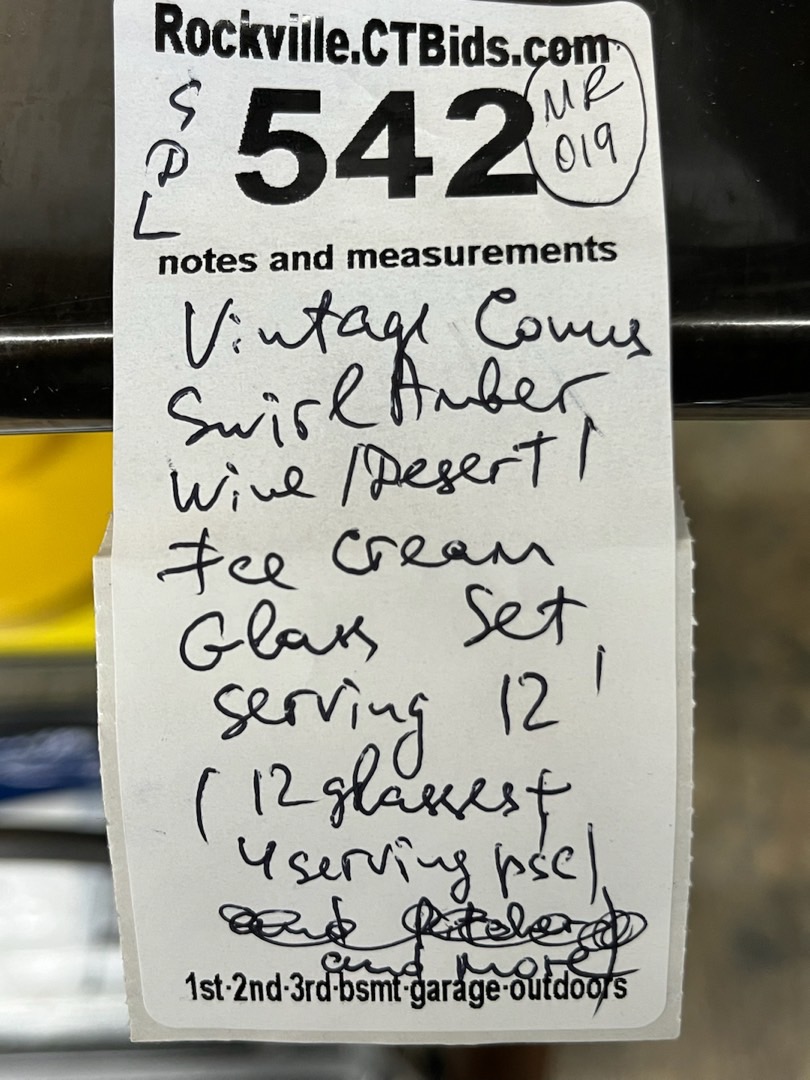 Rockville.CTBids.com
S
D
L
542
MR
019
notes and measurements
Vintage Comus
Swirl Amber
Wine / Desert /
Ice Cream
Glass Set,
serving 12
(12 glasses +
4 serving psc)
and more)
1st-2nd-3rd-bsmt-garage-outdoors